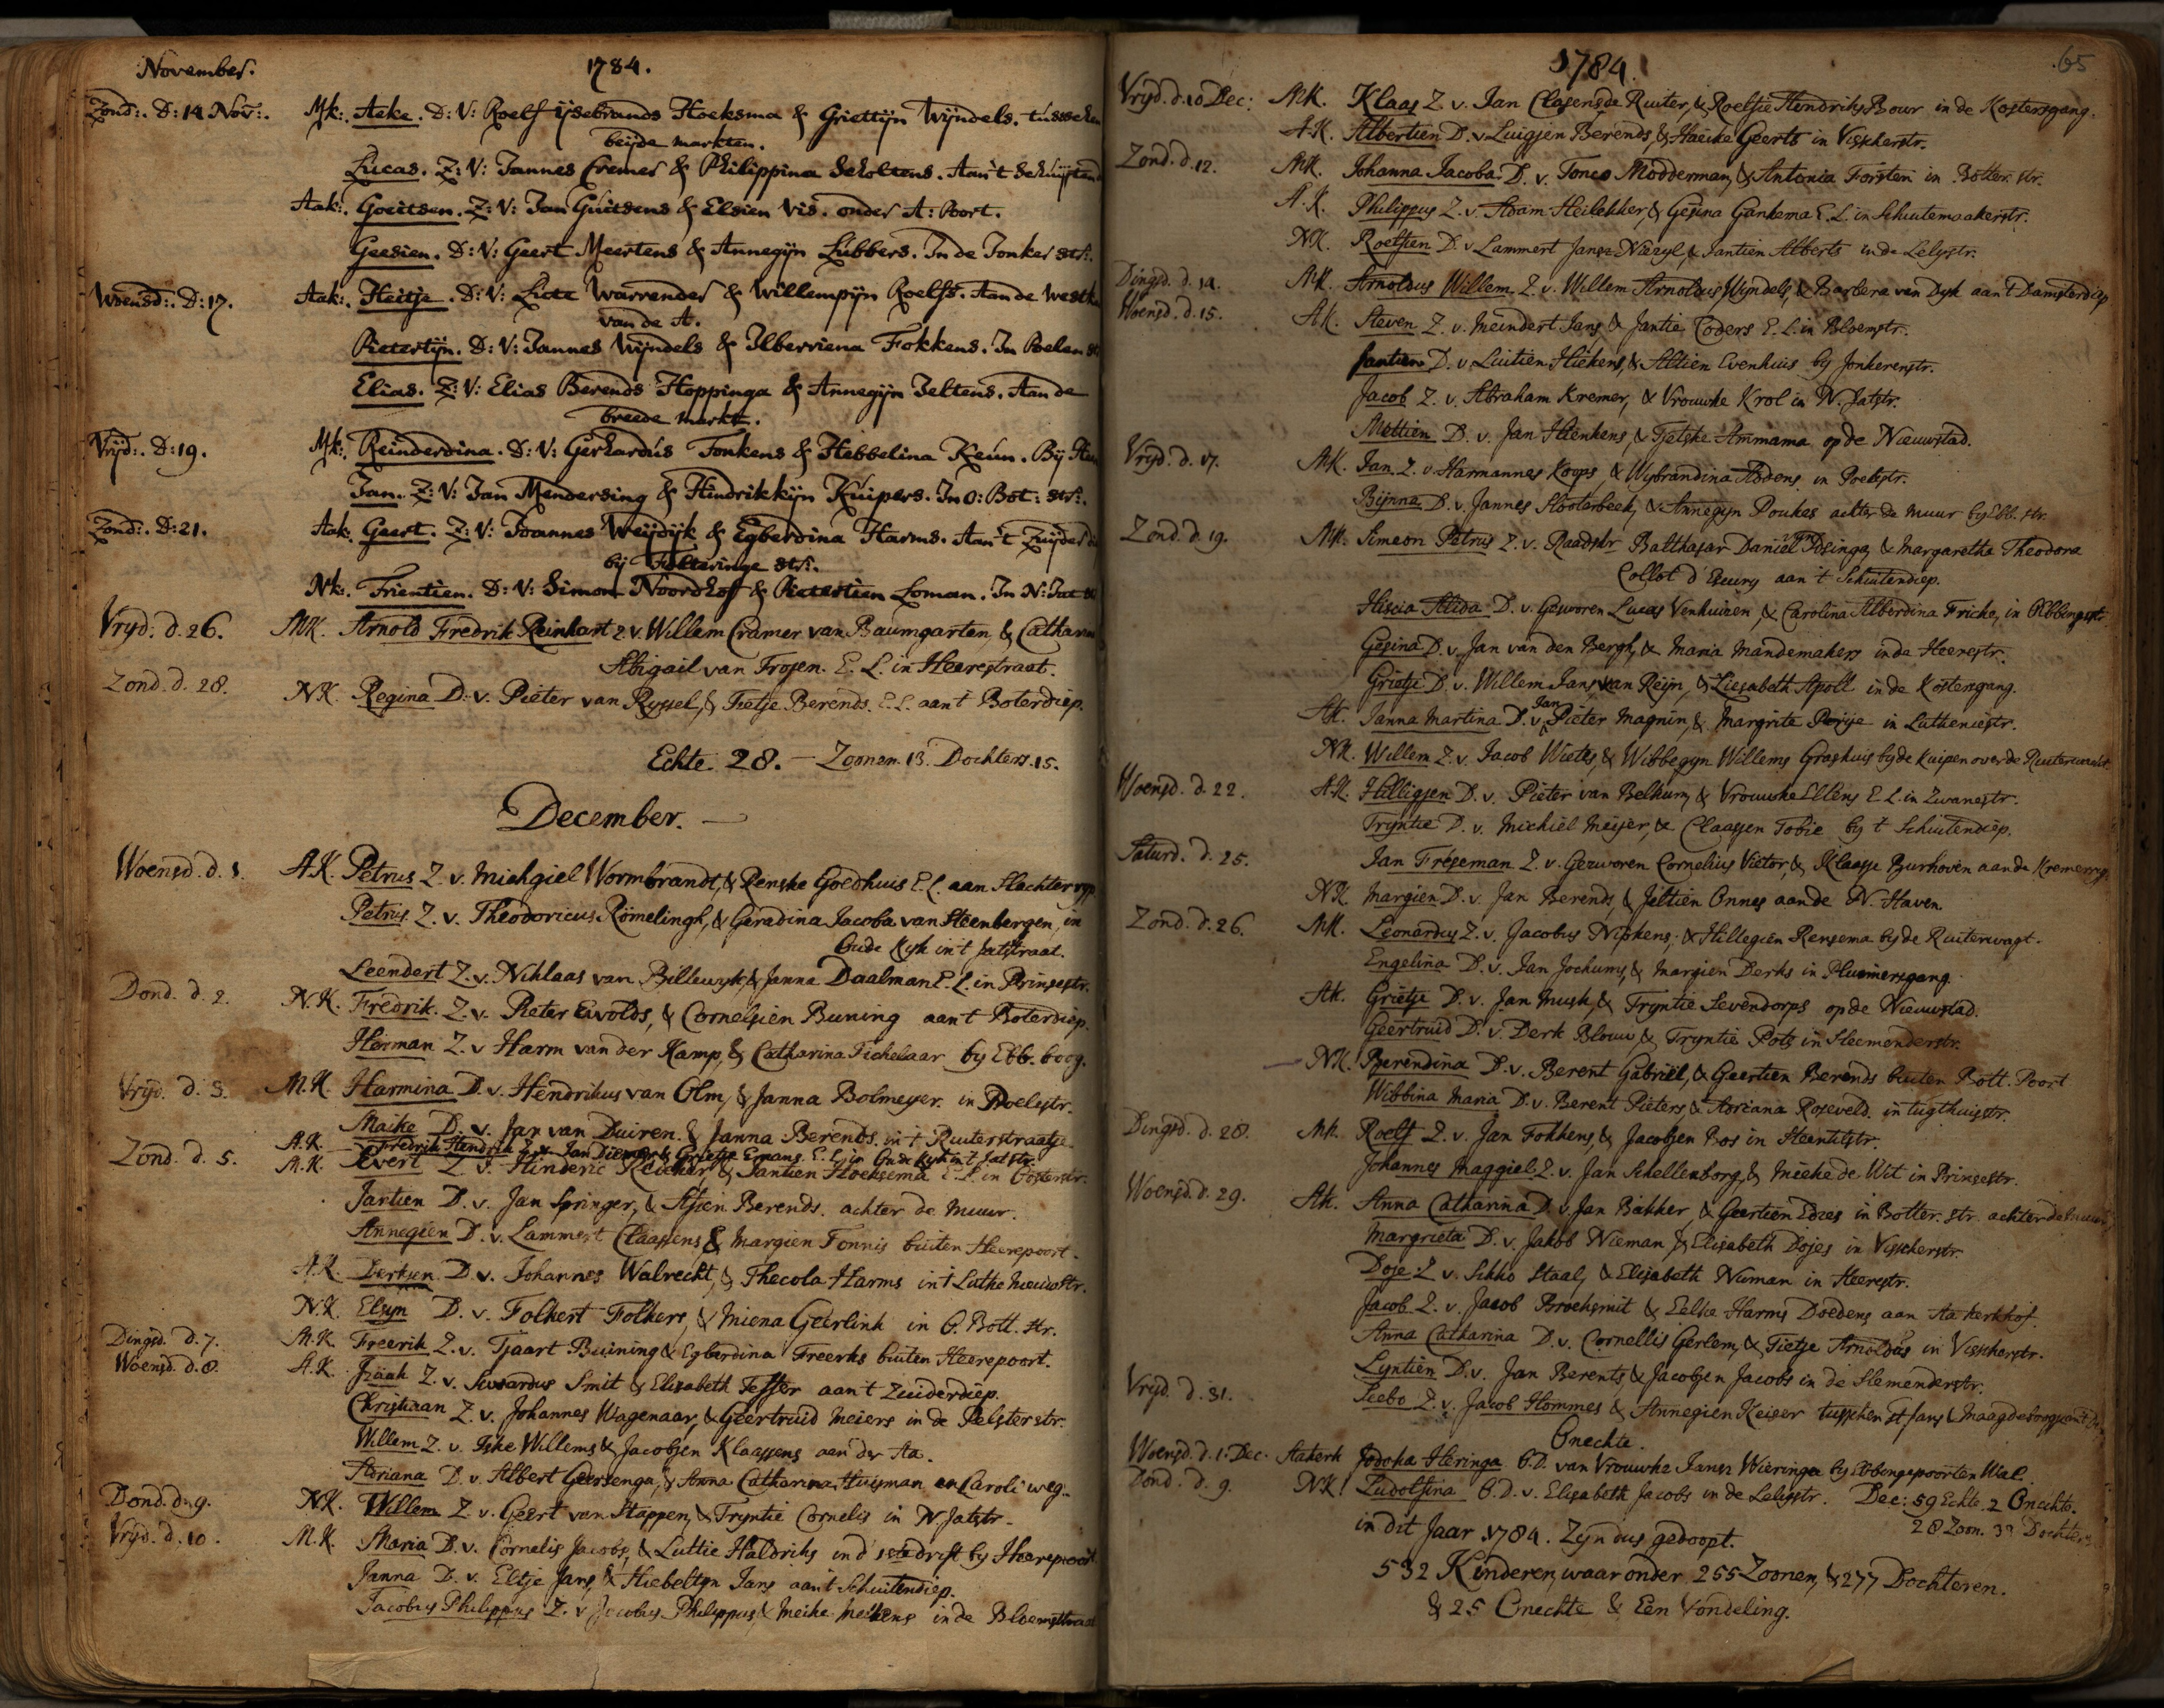 November. 1784.
Zond:. D: 14 Nov:. Mk:. Aeke. D: V: Roelf ijsebrands Hoeksma & Griettijn Wijndels. tússchen
beijde markten.
Lucas. Z: V: Jannes Cremer & Philippina Scholtens. Aan't Schuijtend
Aak:. Goeitsen. Z: V: Jan Guitsens & Elsien Vis. onder A: Poort.
Geesien. D: V: Geert Meertens & Annegijn Lubbers. In de Jonker str:.
Woensd:. D: 17. Aak:. Heitje. D: V: Liote Warrender & Willempijn Roelfs. Aan de Westk
van de A.
Pietertijn. D: V: Jannes Wijndels & Ilberviena Fokkens. In Poelen st
Elias. Z: V: Elias Berends Hoppinga & Annegijn Jeltens. Aan de
breede markt.
Vrijd:. D: 19. Mk:. Reinderdina. D: V: Gerhardús Fonkens & Hebbelina Keún. Bij
Jan. Z: V: Jan Mendersing & Hindrikkijn Kúipers. In O: Bot: str:.
Zond:. D: 21. Aak:. Geert. Z: V: Joannes Weijdijk & Egberdina Harms. Aan't Zuijder
bij Folteringe str:.
Nk:. Trientien. D: V: Simon Noordhof & Pietertien Loman. In N: Jat
Vryd: d. 26. MK. Arnold Fredrik Reinhart Z. v. Willem Cramer van Baumgarten, & Cathar
Abigail van Trosen. E. L. in Heerestraat.
Zond. d. 28. NK. Regina D. v. Pieter van Ryssel, & Tietje Berends. E. L. aan t Boterdiep.
Echte 28. — Zoonen. 13. Dochters. 15.
December. —
Woensd. d. 1. A.K. Petrus Z. v. Michgiel Wormbrandt, & Renske Goedhuis E. L. aan Slachter
Petrus Z. v. Theodoricus Römelingh, & Geradina Jacoba van Steenbergen, in
Oude Kyk in t Jatstraat.
Leendert Z. v. Niklaas van Billewyk, & Janna Daalman E. L. in Prinsestr.
Dond. d. 2. N.K. Fredrik. Z. v. Pieter Eivolds, & Cornelsien Buning aan t Boterdiep.
Herman Z. v Harm van der Kamp, & Catharina Tichelaar by Ebb. boog.
Vryd. d. 3. M.K. Harmina D. v. Hendrikus van Olm, & Janna Bolmeyer. in Poelestr.
Maike D. v. Jan van Duiren & Janna Berends. in t Ruiterstraatje
A.K. Fredrik Hendrik Z. v. Jan Diemer & Grietje Emans. E. L. in Oude Kyk in t Jatstr.
Zond. d. 5. M.K. Evert Z. v. Hinderic Reicher, & Jantien Hoeksema E. L. in Oosterstr.
Jantien D. v. Jan Springer, & Stien Berends. achter de muur.
Annegien D. v. Lammert Claassens & Margien Tonnis buiten Heerepoort.
A.K. Derksen D. v. Johannes Walrecht, & Thecola Harms in t Lutke nieuwstr.
N.K. Elsyn D. v. Folkert Folkers, & Miena Geerlink in O. Bott. str.
Dingsd. d. 7. M.K. Freerik Z. v. Tjaart Buining & Egberdina Freerks buiten Heerepoort.
Woensd. d. 8. A.K. Isaak Z. v. Siwardus Smit & Elisabeth Tesser aan t Zuiderdiep.
Christiaan Z. v. Johannes Wagenaar, & Geertruid Meiers in de Pelsterstr.
Willem Z. v. Iske Willems & Jacobjen Klaassens aan der Aa.
Adriana D. v. Albert Geersenga, & Anna Catharina Huisman en Caroli weg.
Dond. d. 9. N.K. Willem Z. v. Geert van Stappen, & Tryntie Cornelis in N. Jatstr.
Vryd. d. 10. M.K. Maria D. v. Cornelis Jacobs, & Luttie Haldriks in d' stedrift by Heerepoort
Janna D. v. Eltje Jans, & Hiebeltyn Jans aan t Schuitendiep.
Jacobus Philippus Z. v Jacobus Philippus, & Meike Meikens in de Bloemstraat
1784. 65
Vryd. d. 10 Dec: MK. Klaas Z. v. Jan Clasens de Ruiter, & Roelfie Hendriks Bour in de Kostersgang.
A.K. Albertien D. v. Luigjen Berends, & Haeike Geerts in Visscherstr.
Zond. d. 12. MK. Johanna Jacoba D. v. Tonco Modderman, & Antonia Forsten in Botter. str.
A.K. Philippus Z. v. Adam Heilekker, & Gesina Gankema E. L. in Schuitemaakerstr.
NK. Roelfien D. v. Lammert Janse Nieryl, & Jantien Alberts in de Lelystr.
Dingsd. d. 14. MK. Arnoldus Willem Z. v. Willem Arnoldus Wijndels, & Barbera van Dyk aan t Damsterdiep
Woensd. d. 15. AK. Steven Z. v. Meindert Jans & Jantie Coders E. L. in Bloemstr.
Jantien D. v. Luitien Hiekens, & Altien Evenhuis by Jonkerenstr.
Jacob Z. v. Abraham Kremer, & Vrouwke Krol in N. Jatstr.
Mettien D. v. Jan Heenkens, & Tjetske Ammama op de Nieuwstad.
Vryd. d. 17. AK. Jan Z. v. Harmannes Koops, & Wybrandina Addens in Poelestr.
Bijnna D. v. Jannes Slooterbeek, & Annegyn Poukes achter de muur by Ebb. str.
Zond. d. 19. MK. Simeon Petrus Z. v. Raadshr Balthasar Daniel van Idsinga, & Margaretha Theodora
Collot d' Escury aan 't Schuitendiep.
Hiscia Alida D. v. Gesworen Lucas Venhuizen, & Carolina Alberdina Fricke, in Ebbingestr.
Gesina D. v. Jan van den Bergh, & Maria Mandemakers in de Heerestr.
Grietje D. v. Willem Jans van Reijn, & Liesabeth Apoll in de Kostersgang.
AK. Janna Martina D. v. Jan Pieter Magnin, & Margrite Perije in Lutheriestr.
NK. Willem Z. v. Jacob Wietes, & Wibbegyn Willems Grashuis by de Kuipen over de Ruiterwacht
Woensd. d. 22. A.K. Hilligjen D. v. Pieter van Belkum, & Vrouwke Ellens E. L. in Zwanestr.
Tryntie D. v. Michiel Meijer, & Claassen Tobie by t Schuitendiep.
Saturd. d. 25. Jan Freseman Z. v. Gezworen Cornelius Victor, & Klaasje Burhoven aan de Kremerrijp.
NK. Margien D. v. Jan Berends, & Jeltien Onnes aan de N. Haven.
Zond. d. 26. MK. Leonardus Z. v. Jacobus Nipkens, & Hillegien Rensema by de Ruiterwagt.
Engelina D. v. Jan Jochums, & Margien Derks in Pluimersgang.
AK. Grietje D. v. Jan Musk, & Tryntie Sevendorps op de Nieuwstad.
Geertruid D. v. Derk Blouw & Tryntie Pots in Sleemenderstr.
NK. Berendina D. v. Berent Gabriël, & Geertien Berends buiten Bott. Poort
Wibbina Maria D. v. Berent Pieters, & Adriana Roseveld. in tugthuisstr.
Dingsd. d. 28. MK. Roelf Z. v. Jan Fokkens, & Jacobjen Bos in Heentitstr.
Johannes Maggiel Z. v. Jan Schellenborg, & Mieke de Wit in Prinsestr.
Woensd. d. 29. AK. Anna Catharina D. v. Jan Bakker, & Geertien Edzes in Botter. str. achter de muur
Margrieta D. v. Jakob Nieman & Elisabeth Dojes in Visscherstr.
Doje Z v. Sikko Staal, & Elisabeth Numan in Heerestr.
Jacob Z. v. Jacob Broeksmit & Eelke Harms Doedens aan Aa kerkhof.
Anna Catharina D. v. Cornellis Gerlem, & Tietje Arnoldus in Visscherstr.
Lyntien D. v. Jan Berents, & Jacobjen Jacobs in de Slemenderstr.
Vryd. d. 31. Siebo Z. v. Jacob Hommes & Annegien Keiser tusschen St Jans & Maagdeboog
Onechte.
Woensd. d. 1. Dec. Aakerk Jodoka Heringa O. D. van Vrouwke Jansz Wieringa by Ebbingepoorten Wal.
Dond. d. 9. NK. Ludolfina O. D. v. Elisabeth Jacobs in de Leliestr. Dec: 59 Echte. 2 Onechte.
28 Zoon. 33 Dochter
in dit Jaar 1784. Zyn dus gedoopt.
532 Kinderen, waaronder 255 Zoonen, & 277 Dochteren.
& 25 Onechte & Een Vondeling.